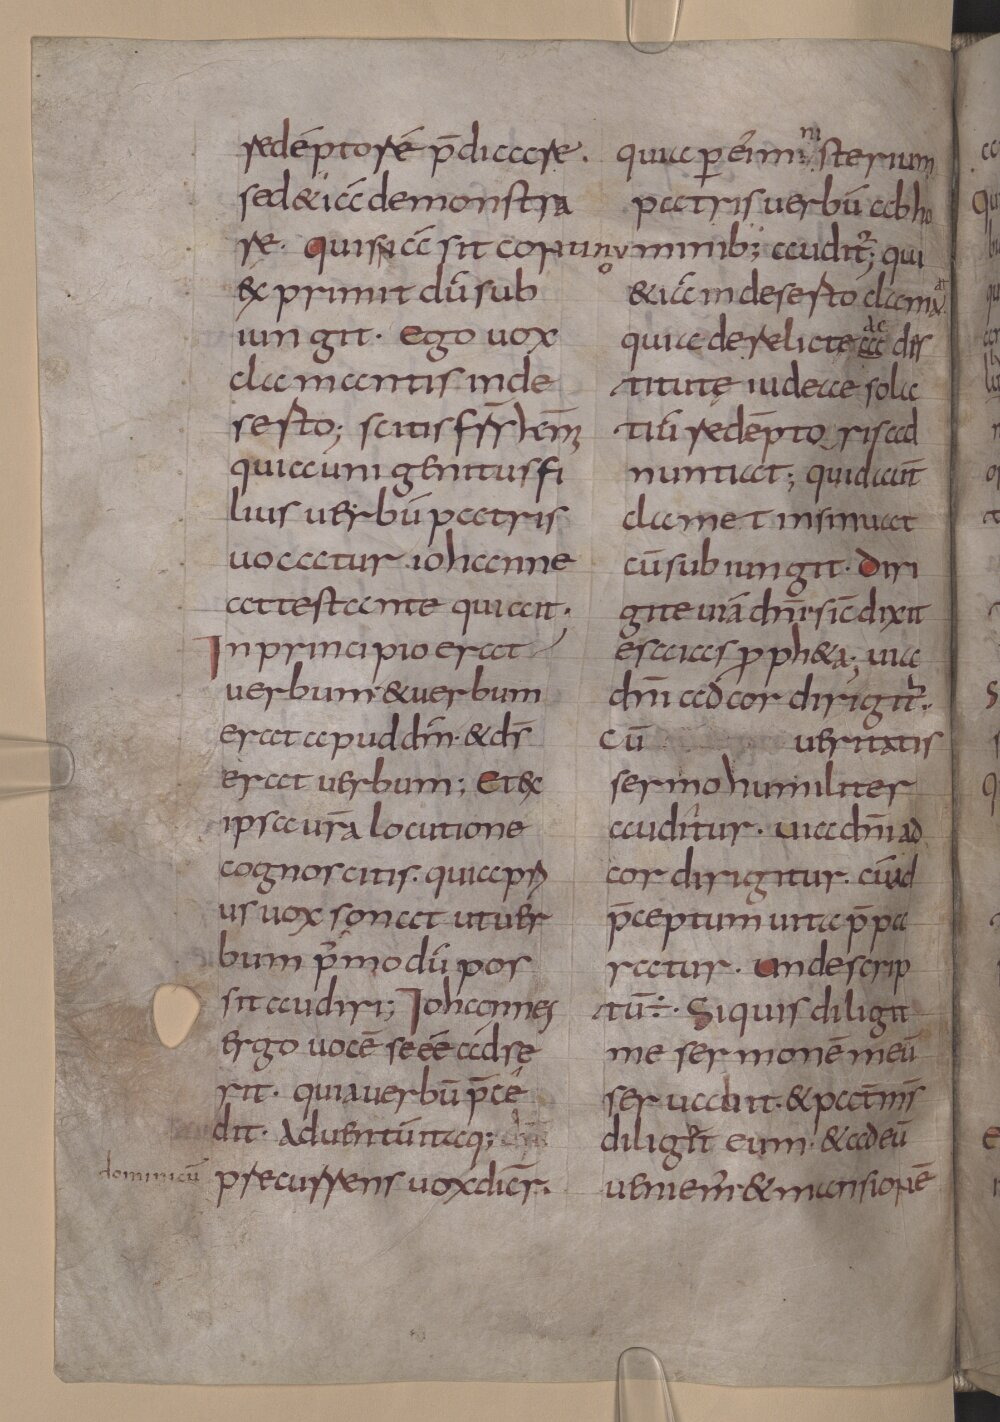 redēptorē p̄dicare.
sed & iā demonstra
re. quis iā sit cor unū
exprimit dū sub
iungit. Ego uox
clamantis in de
serto; scitis frs kmī
quia unigenitus fi
lius uerbū patris
uocatur iohanne
attestante qui ait.
In principio erat
uerbum & uerbum
erat apud dm̄. & ds̄
erat uerbum; Et ex
ipsa urā locutione
cognoscitis. quia pri
us uox sonat ut uer
bum p̄modū pos
sit audiri; Iohannes
ergo uocē se eē adse
rit. quia uerbū p̄ce
dit. Aduentū itaq;
dominicū
p̄recurrens uox dicr̄.
quia per ei min ni sterium
patris uerbū ab ho
minib; auditr̄; qui
& iā in deserto clamat
quia derelictę ac des
titutę iudeae sola
tiū redēptoris ad
nuntiat; quid aut̄
clamet insinuat
cū subiungit. Diri
gite uiā dn̄i sic̄ dixit
esaias ppheta; uia
dn̄i ad cor dirigitr̄.
cū ueritatis
sermo humiliter
auditur. uia dn̄i ad
cor dirigitur. cū ad
p̄ceptum uita p̄pa
ratur. unde scrip
tū ÷. Si quis diligit
me sermonē meū
seruabit. & pat̄ ms̄
diliget eum. & ad eū
ueniem̄ & mansionē